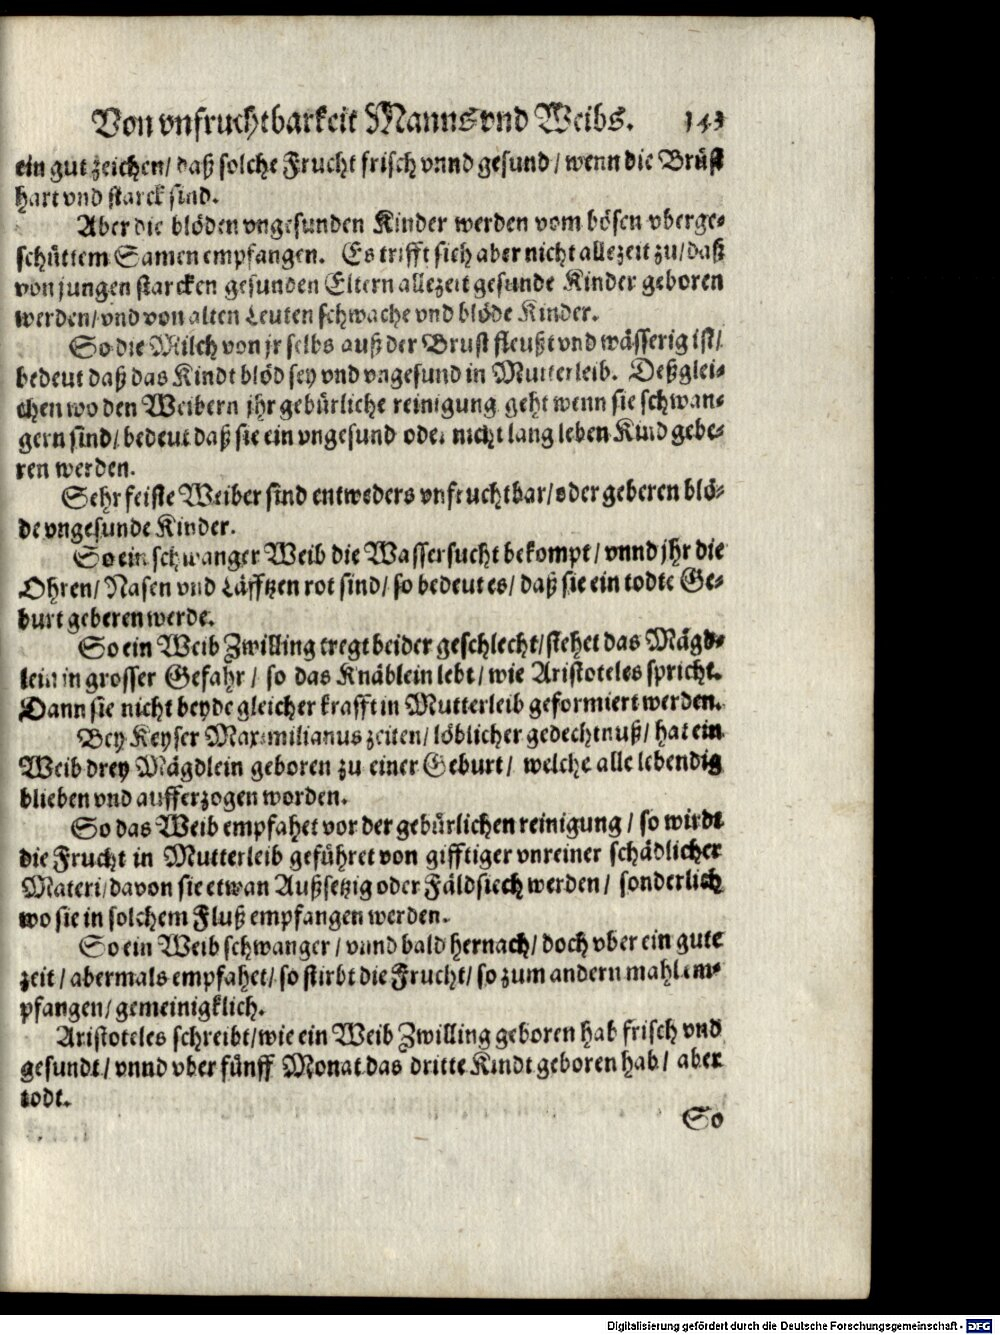 Von vnfruchtbarkeit Manns vnd Weibs. 143
ein gut zeichen/ daß solche Frucht frisch vnnd gesund/ wenn die Brüst
hart vnd starck sind.
Aber die blöden vngesunden Kinder werden vom bösen vberge-
schüttem Samen empfangen. Es trifft sich aber nicht allezeit zu/ daß
von jungen starcken gesunden Eltern allezeit gesunde Kinder geboren
werden/ vnd von alten Leuten schwache vnd blöde Kinder.
So die Milch von jr selbs auß der Brust fleußt vnd wässerig ist/
bedeut daß das Kindt blöd sey vnd vngesund in Mutterleib. Deßglei-
chen wo den Weibern jhr gebürliche reinigung geht wenn sie schwan-
gern sind/ bedeut daß sie ein vngesund oder nicht lang leben Kind gebe-
ren werden.
Sehr feiste Weiber sind entweders vnfruchtbar/ oder geberen blö-
de vngesunde Kinder.
So ein schwanger Weib die Wassersucht bekompt/ vnnd jhr die
Ohren/ Nasen vnd Läfftzen rot sind/ so bedeut es/ daß sie ein todte Ge-
burt geberen werde.
So ein Weib Zwilling tregt beider geschlecht/ stehet das Mägd-
lein in grosser Gefahr/ so das Knäblein lebt/ wie Aristoteles spricht.
Dann sie nicht beyde gleicher krafft in Mutterleib geformiert werden.
Bey Keyser Maximilianus zeiten/ löblicher gedechtnuß/ hat ein
Weib drey Mägdlein geboren zu einer Geburt/ welche alle lebendig
blieben vnd aufferzogen worden.
So das Weib empfahet vor der gebürlichen reinigung/ so wirdt
die Frucht in Mutterleib geführet von gifftiger vnreiner schädlicher
Materi/ davon sie etwan Außsetzig oder Fäldsiech werden/ sonderlich
wo sie in solchem Fluß empfangen werden.
So ein Weib schwanger/ vnnd bald hernach/ doch vber ein gute
zeit/ abermals empfahet/ so stirbt die Frucht/ so zum andern mahl em-
pfangen/ gemeinigklich.
Aristoteles schreibt/ wie ein Weib Zwilling geboren hab frisch vnd
gesundt/ vnnd vber fünff Monat das dritte Kindt geboren hab/ aber
todt.
So
Digitalisierung gefördert durch die Deutsche Forschungsgemeinschaft - DFG